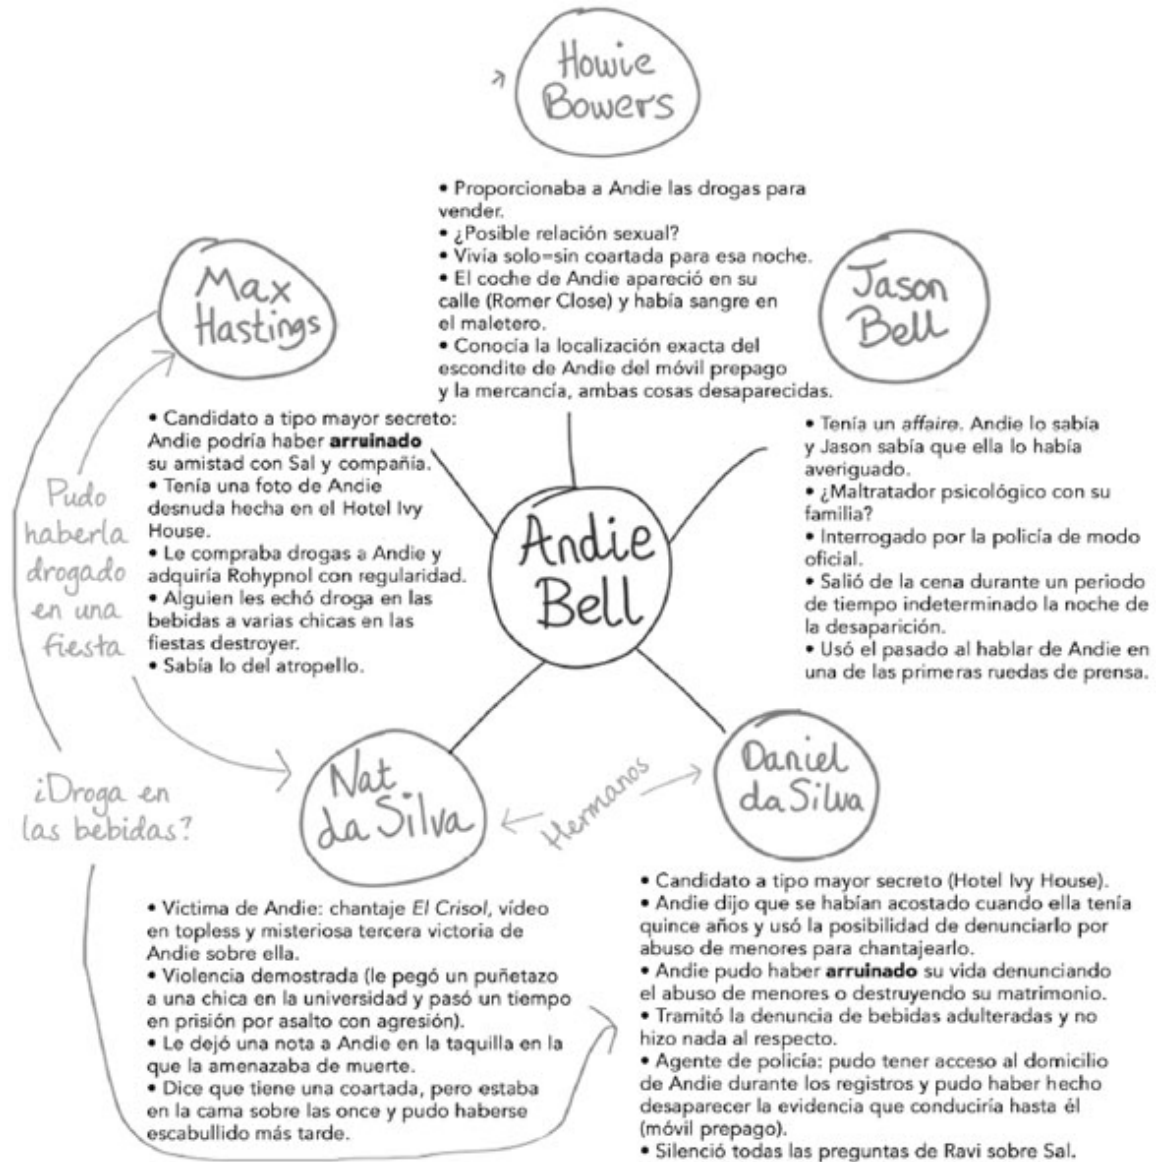 Howie
Bowers
• Proporcionaba a Andie las drogas para
vender.
• ¿Posible relación sexual?
• Vivía solo=sin coartada para esa noche.
• El coche de Andie apareció en su
calle (Romer Close) y había sangre en
el maletero.
• Conocía la localización exacta del
escondite de Andie del móvil prepago
y la mercancía, ambas cosas desaparecidas.
Max
Hastings
• Candidato a tipo mayor secreto:
Andie podría haber arruinado
su amistad con Sal y compañía.
• Tenía una foto de Andie
desnuda hecha en el Hotel Ivy
House.
• Le compraba drogas a Andie y
adquiría Rohypnol con regularidad.
• Alguien les echó droga en las
bebidas a varias chicas en las
fiestas destroyer.
• Sabía lo del atropello.
Jason
Bell
• Tenía un affaire. Andie lo sabía
y Jason sabía que ella lo había
averiguado.
• ¿Maltratador psicológico con su
familia?
• Interrogado por la policía de modo
oficial.
• Salió de la cena durante un periodo
de tiempo indeterminado la noche de
la desaparición.
• Usó el pasado al hablar de Andie en
una de las primeras ruedas de prensa.
Pudo
haberla
drogado
en una
fiesta
Andie
Bell
¿Droga en
las bebidas?
Nat
da Silva
Hermanos
Daniel
da Silva
• Víctima de Andie: chantaje El Crisol, vídeo
en topless y misteriosa tercera victoria de
Andie sobre ella.
• Violencia demostrada (le pegó un puñetazo
a una chica en la universidad y pasó un tiempo
en prisión por asalto con agresión).
• Le dejó una nota a Andie en la taquilla en la
que la amenazaba de muerte.
• Dice que tiene una coartada, pero estaba
en la cama sobre las once y pudo haberse
escabullido más tarde.
• Candidato a tipo mayor secreto (Hotel Ivy House).
• Andie dijo que se habían acostado cuando ella tenía
quince años y usó la posibilidad de denunciarlo por
abuso de menores para chantajearlo.
• Andie pudo haber arruinado su vida denunciando
el abuso de menores o destruyendo su matrimonio.
• Tramitó la denuncia de bebidas adulteradas y no
hizo nada al respecto.
• Agente de policía: pudo tener acceso al domicilio
de Andie durante los registros y pudo haber hecho
desaparecer la evidencia que conduciría hasta él
(móvil prepago).
• Silenció todas las preguntas de Ravi sobre Sal.